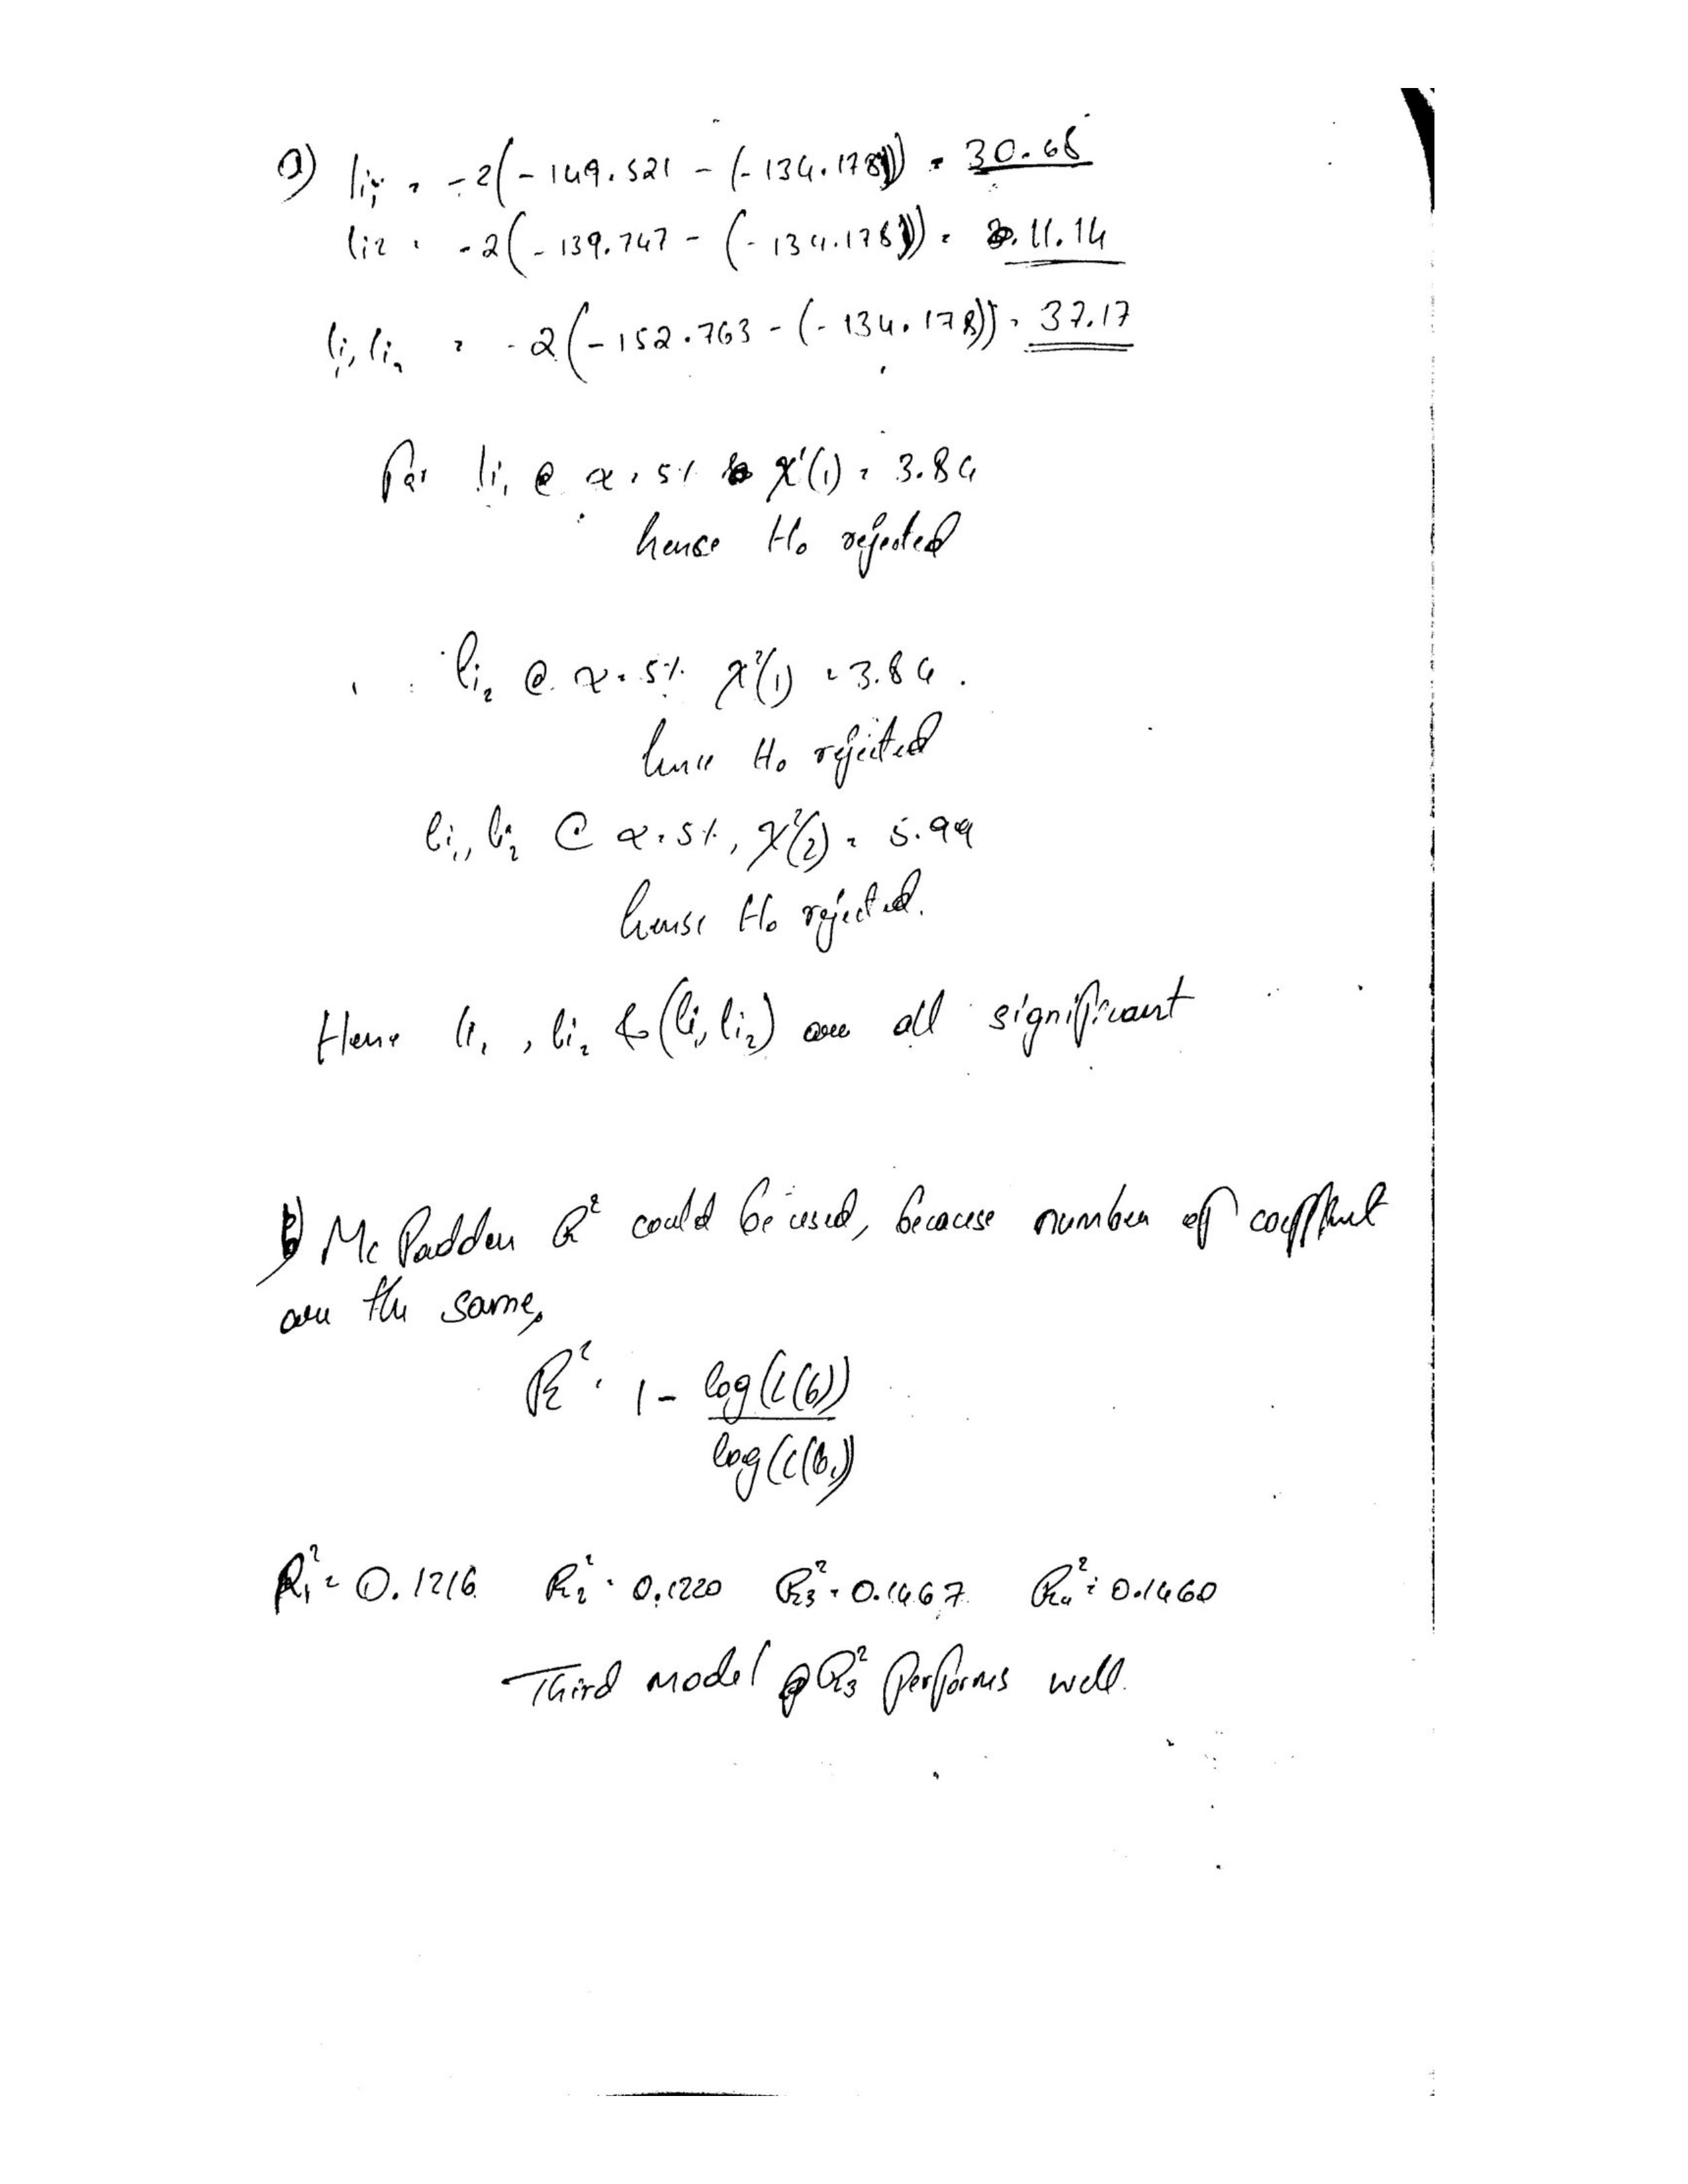 a) li₁ = -2(-149.521 - (-134.178)) = 30.68
li2 = -2(-139.747 - (-134.178)) = 11.14
li₁, li₂ = -2(-152.763 - (-134.178)) = 37.17
For li₁ @ α = 5% χ²(1) = 3.84
hence H₀ rejected
li₂ @ α = 5% χ²(1) = 3.84.
hence H₀ rejected
li₁, li₂ @ α = 5%, χ²(2) = 5.99
hense H₀ rejected.
Hence li₁, li₂ & (li₁, li₂) are all significant
b) Mc Fadden R² could be used, because number of coefficient
are the same,
R² = 1 - log(L(b))
log(L(b₁))
R₁² = 0.1216 R₂² = 0.1220 R₃² = 0.1467 R₄² = 0.1460
Third model R₃² performs well.